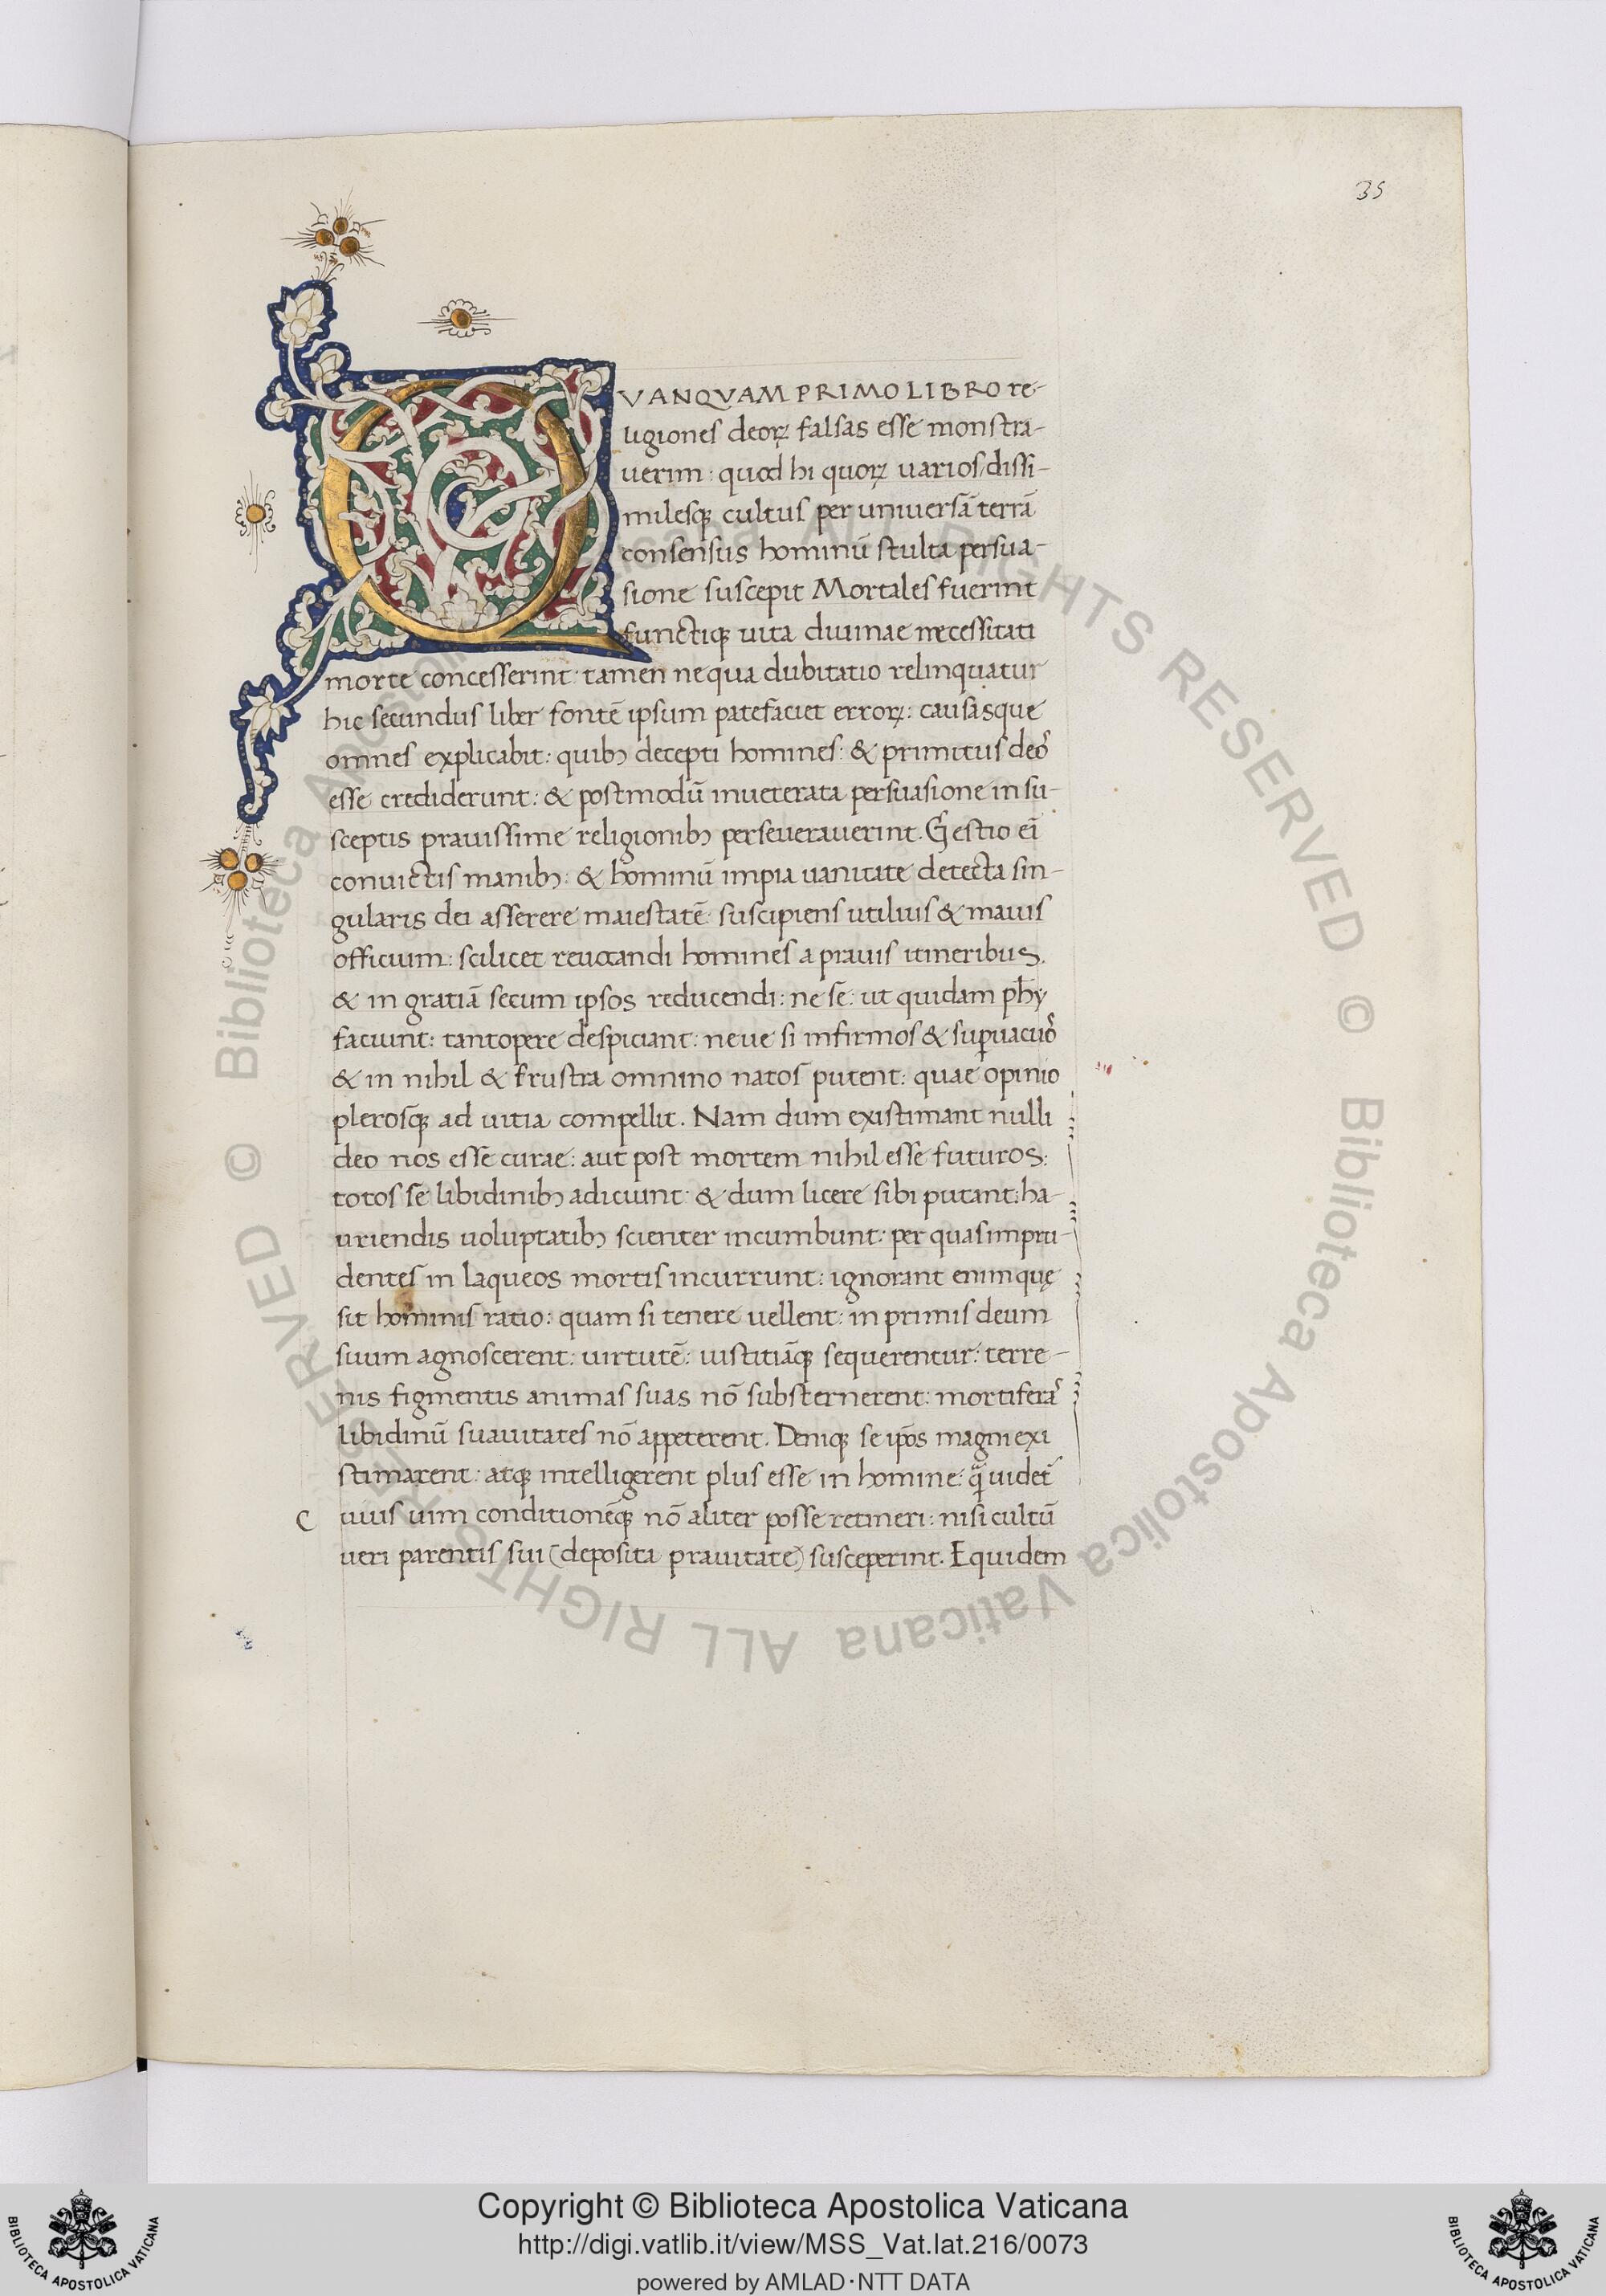 35
QVANQVAM PRIMO LIBRO re-
ligiones deoꝝ falsas esse monstra-
uerim: quod hi quoꝝ uarios/dissi-
milesqꝫ cultus per uniuersā terrā
consensus hominū stulta persua-
sione suscepit Mortales fuerint
functiqꝫ uita diuinae necessitati
morte concesserint: tamen ne qua dubitatio relinquatur
hic secundus liber fontē ipsum patefaciet erroꝝ: causasque
omnes explicabit: quibꝫ decepti homines: & primitus deoˢ
esse crediderunt: & postmodū inueterata persuasione in su-
sceptis prauissime religionibꝫ perseuerauerint. Gestio eī
conuictis manibꝫ: & hominū impia uanitate detecta sin-
gularis dei asserere maiestatē: suscipiens utilius & maius
officium: scilicet reuocandi homines a prauis itineribus.
& in gratiā secum ipsos reducendi: ne sē: ut quidam phy
faciunt: tantopere despiciant: neue si infirmos & suꝑuacuoˢ
& in nihil & frustra omnino natos putent: quae opinio
plerosqꝫ ad uitia compellit. Nam dum existimant nulli
deo nos esse curae: aut post mortem nihil esse futuros:
totos se libidinibꝫ adiciunt: & dum licere sibi putant: ha-
uriendis uoluptatibꝫ scienter incumbunt: per quas impru-
dentes in laqueos mortis incurrunt: ignorant enim quę
sit hominis ratio: quam si tenere uellent: in primis deum
suum agnoscerent: uirtutē: iustitiāqꝫ sequerentur: terre-
nis figmentis animas suas nō substernerent: mortiferaˢ
libidinū suauitates nō appeterent. Deniqꝫ se ip̄os magni exi
stimarent: atqꝫ intelligerent plus esse in homine: q̄ uidet᷑
C uius uim conditionēqꝫ nō aliter posse retineri: nisi cultū
ueri parentis sui (deposita prauitate) susceperint. Equidem
© Biblioteca Apostolica Vaticana ALL RIGHTS RESERVED © Biblioteca Apostolica Vaticana ALL RIGHTS RESERVED
Copyright © Biblioteca Apostolica Vaticana
http://digi.vatlib.it/view/MSS_Vat.lat.216/0073
powered by AMLAD·NTT DATA
BIBLIOTECA APOSTOLICA VATICANA
BIBLIOTECA APOSTOLICA VATICANA